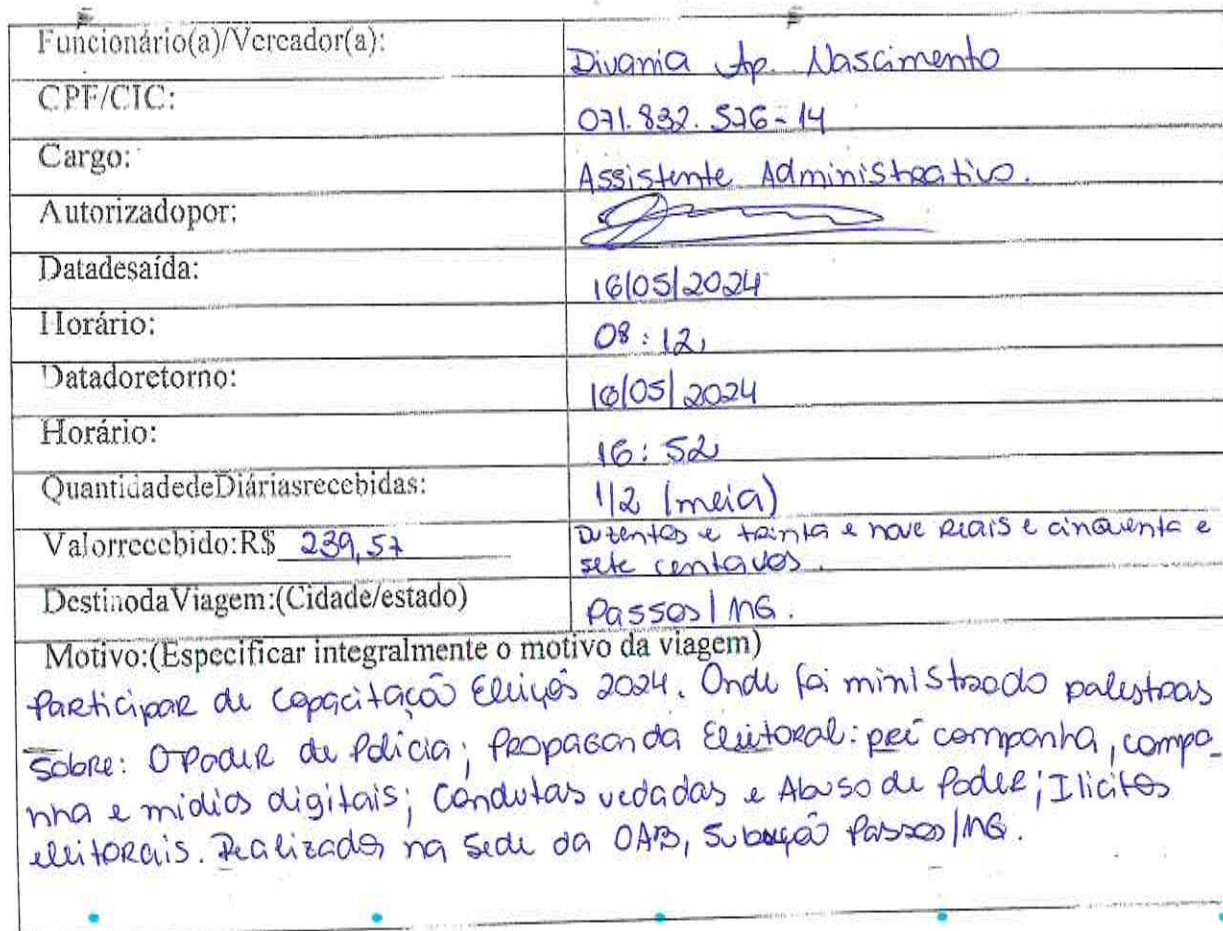 Funcionário(a)/Vereador(a): Divania Ap. Nascimento
CPF/CIC: 071.832.576-14
Cargo: Assistente Administrativo.
Autorizadopor:
Datadesaída: 16/05/2024
Horário: 08:12
Datadoretorno: 16/05/2024
Horário: 16:52
QuantidadedeDiáriasrecebidas: 1/2 (meia)
Valorrecebido:R$ 239,57 Duzentos e trinta e nove reais e cinquenta e
sete centavos.
DestinodaViagem:(Cidade/estado) Passos/MG.
Motivo:(Especificar integralmente o motivo da viagem)
Participar de Capacitação Eleições 2024. Onde foi ministrado palestras
sobre: O Poder de Polícia; Propaganda Eleitoral: pré companha, compa-
nha e mídias digitais; Condutas vedadas e Abuso de Poder; Ilícitos
eleitorais. Realizado na Sede da OAB, Subseção Passos/MG.